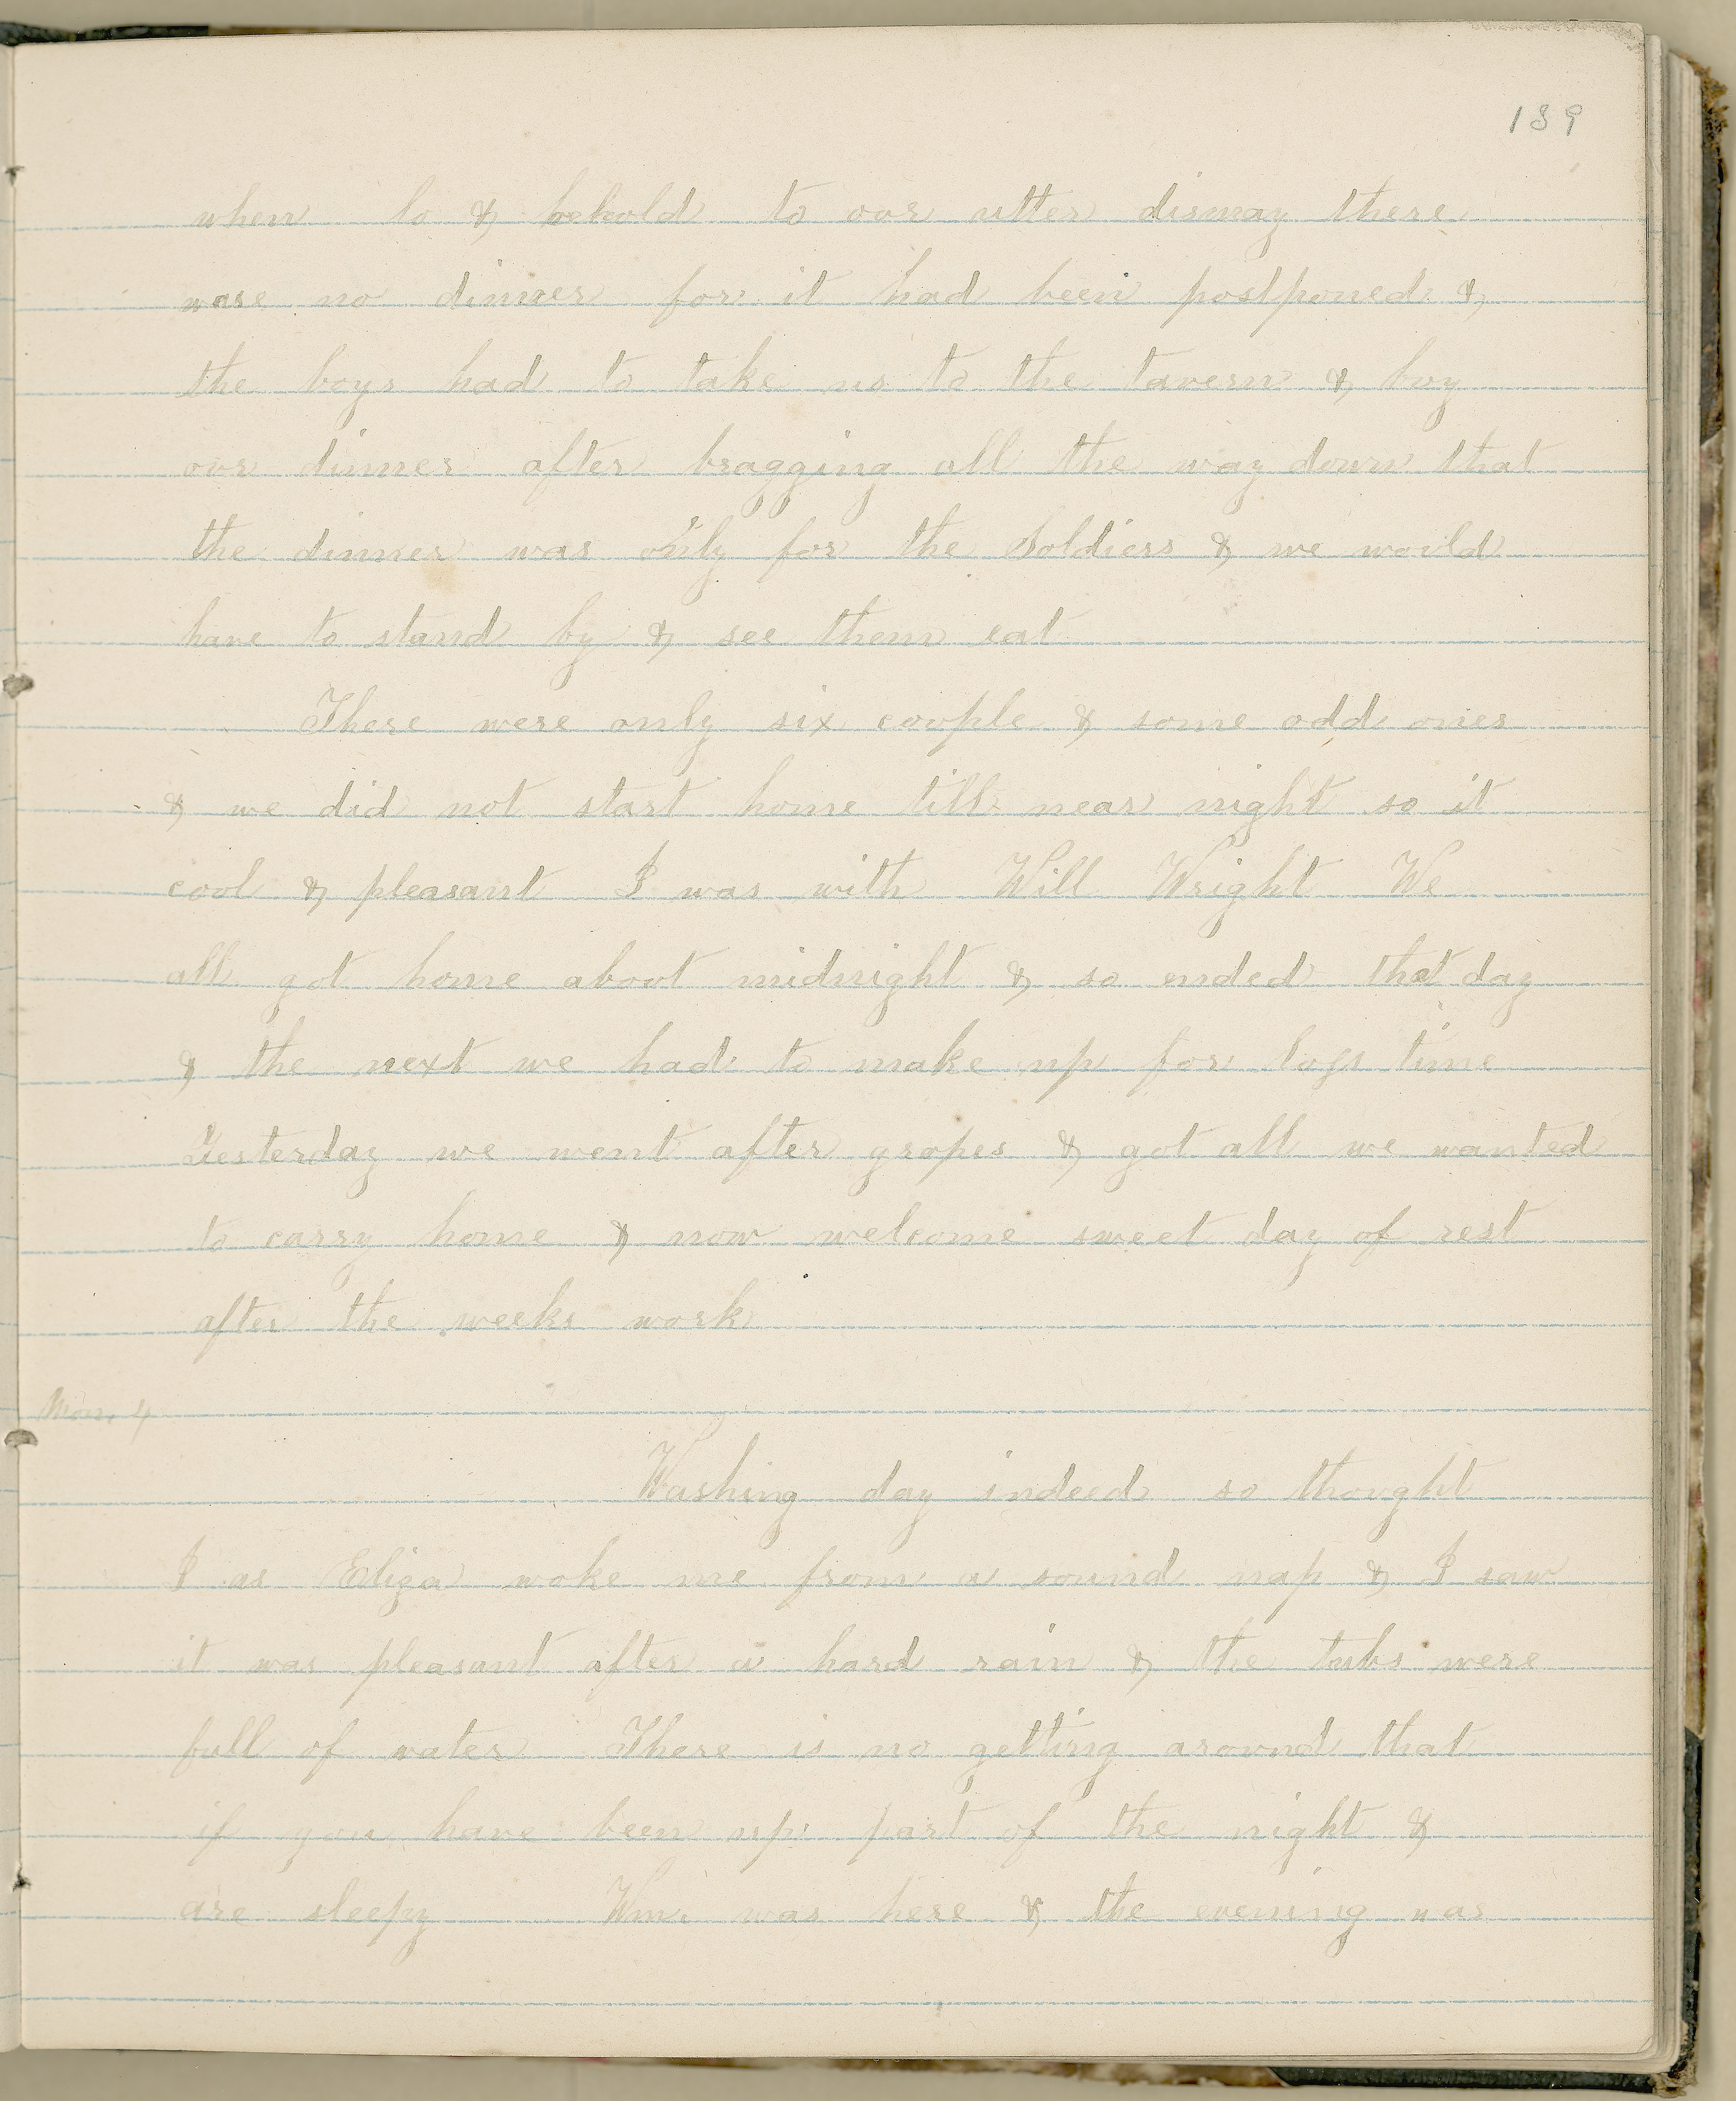 139
when lo & behold to our utter dismay there
was no dinner for it had been postponed &
the boys had to take us to the tavern & buy
our dinner after bragging all the way down that
the dinner was only for the Soldiers & we would
have to stand by & see them eat
There were only six couple & some odd ones
& we did not start home till near night so it
cool & pleasant I was with Will Wright We
all got home about midnight & so ended that day
& the next we had to make up for lost time
Yesterday we went after grapes & got all we wanted
to carry home & now welcome sweet day of rest
after the weeks work
Mon. 4
Washing day indeed so thought
I as Eliza woke me from a sound nap & I saw
it was pleasant after a hard rain & the tubs were
full of water There is no getting around that
if you have been up part of the night &
are sleepy Wm. was here & the evening was